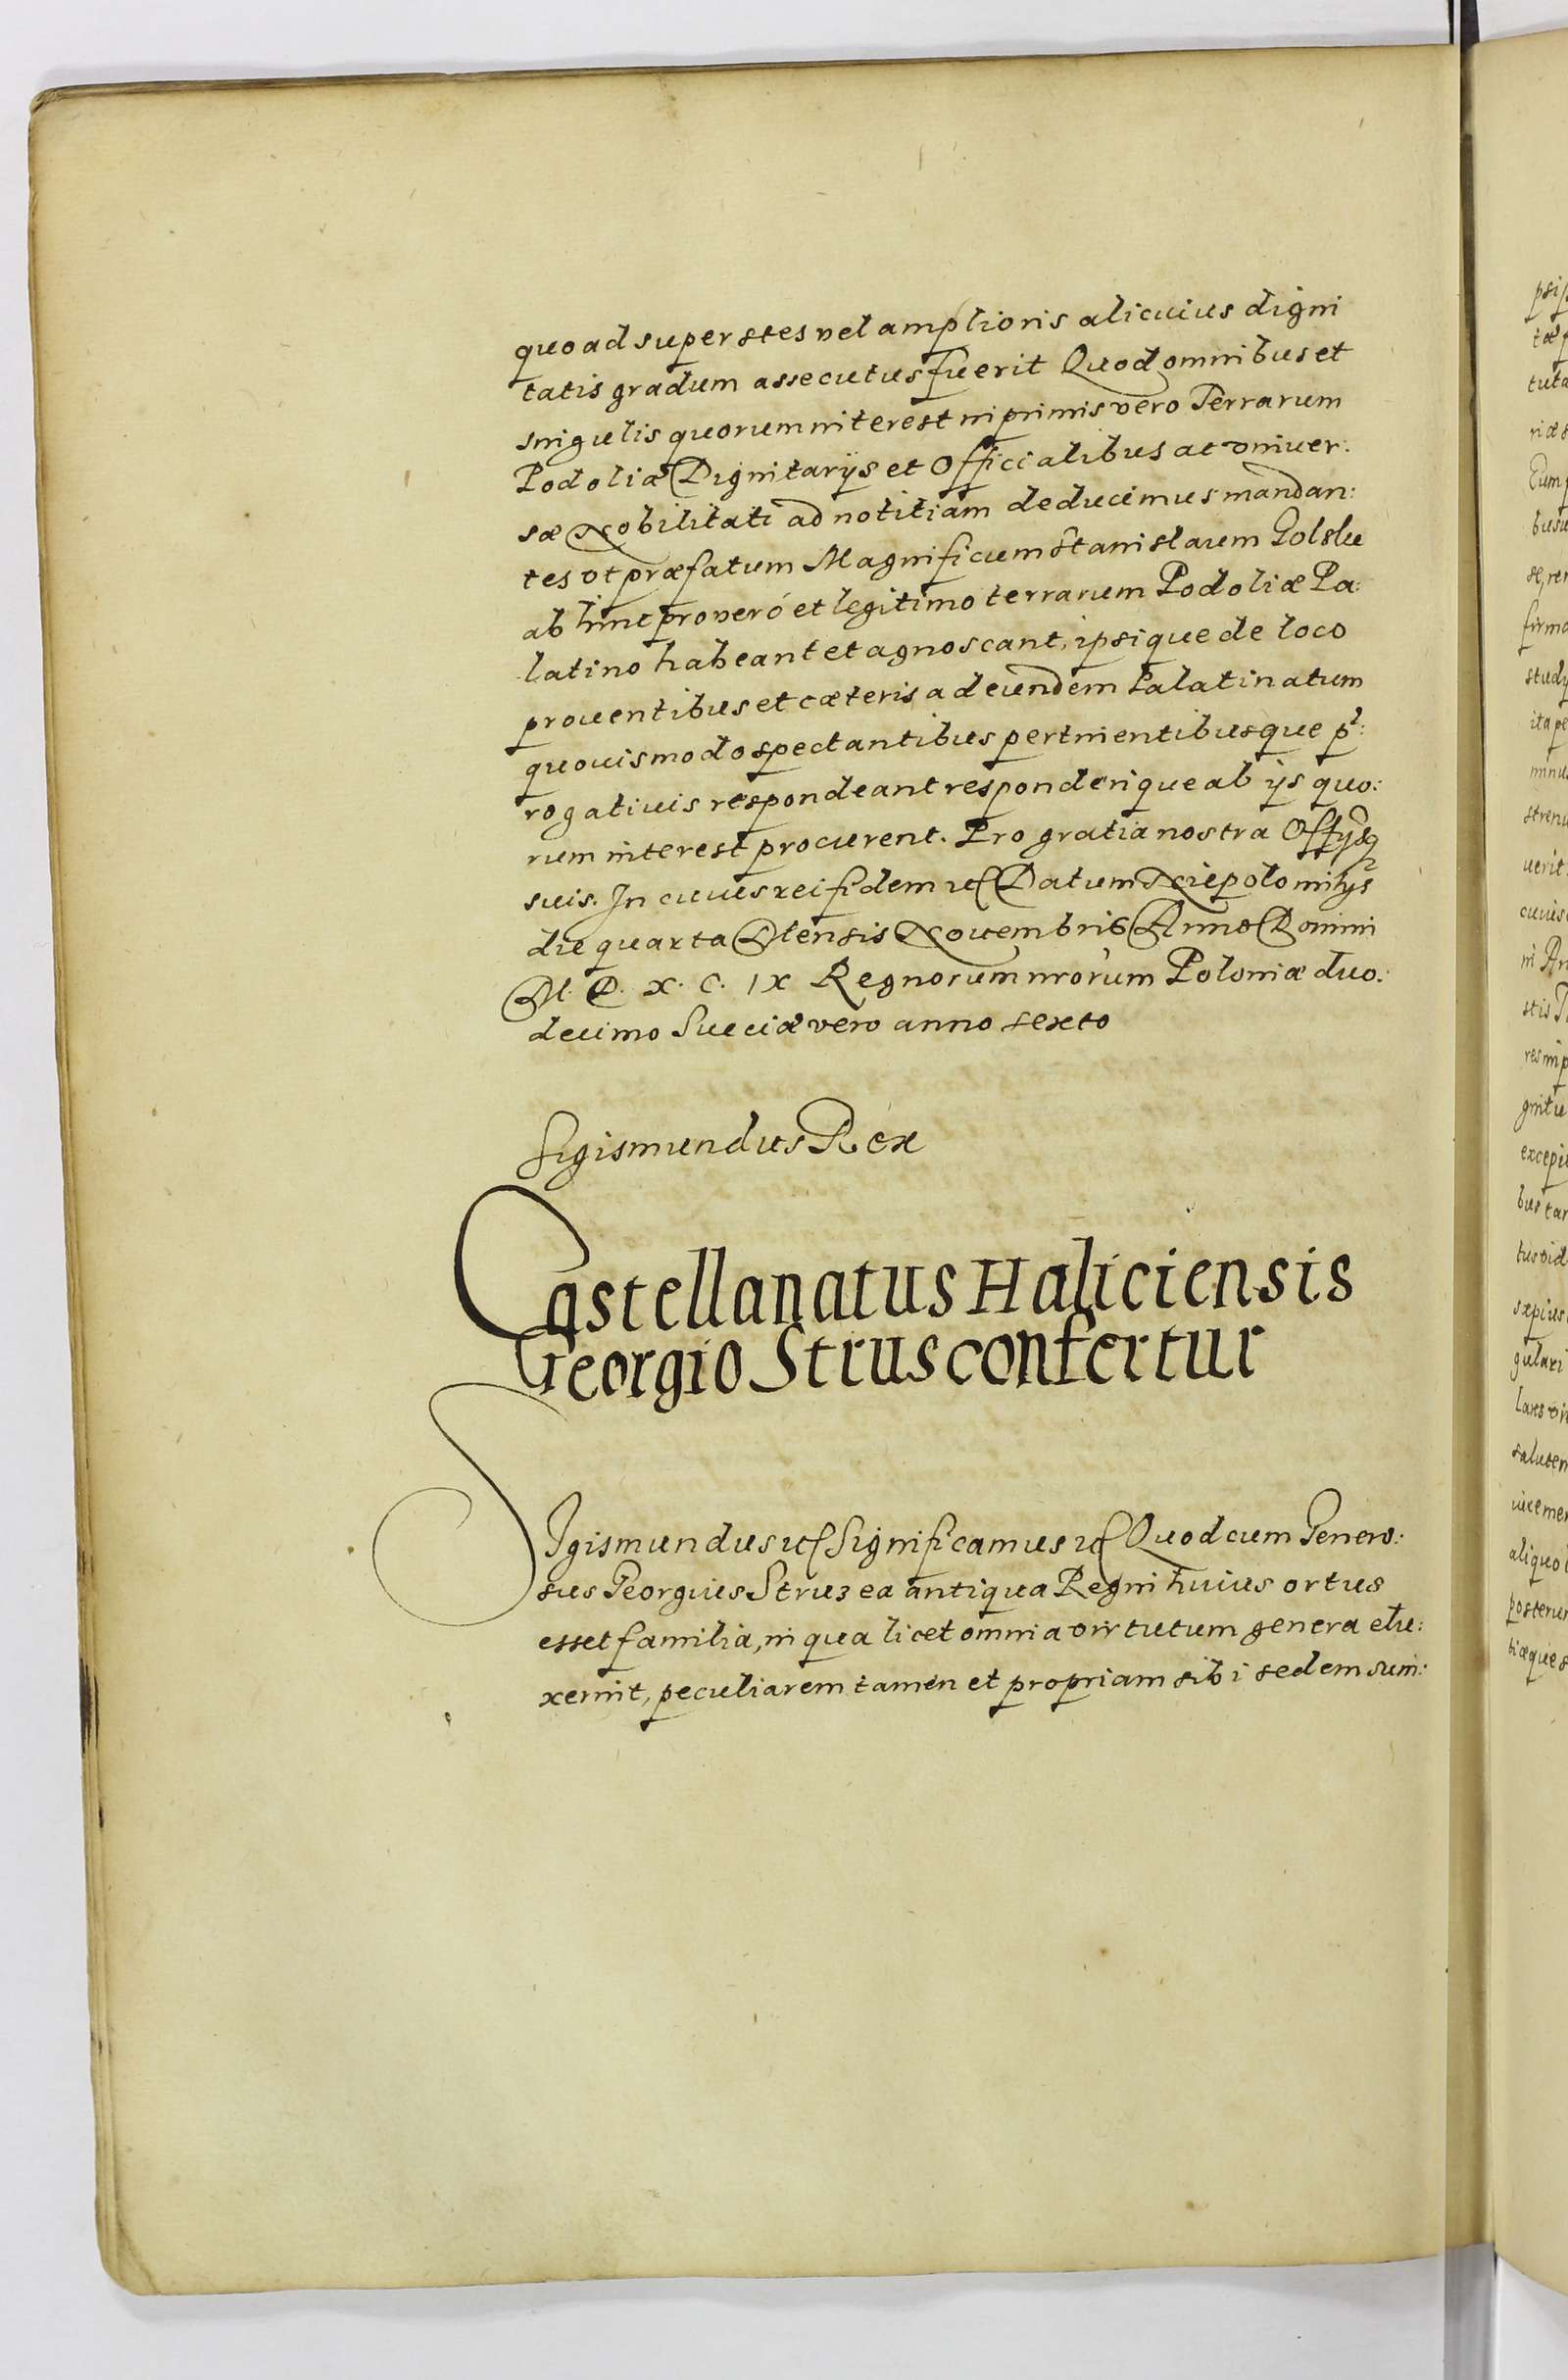 quoad superstes vel amplioris alicuius digni
tatis gradum assecutus fuerit Quod omnibus et
singulis quorum interest inprimis vero Terrarum
Podoliæ Dignitarijs et Officialibus ac vniuer:
sæ Nobilitati ad notitiam deducimus mandan:
tes vt præfatum Magnificum Stanislaum Golslu
ab hinc pro veró et legitimo terrarum Podoliæ Pa:
latino habeant et agnoscant, ipsique de loco
prouentibus et cæteris ad eundem Palatinatum
quouismodo spectantibus pertinentibusque p̃:
rogatiuis respondeant responderique ab ijs quo:
rum interest procurent. Pro gratia nostra Offijsq
suis. In cuius rei fidem etc Datum Niepolomitijs
die quarta Mensis Nouembris Anno Domini
M. D. X. C. IX Regnorum nrorum Poloniæ duo:
decimo Sueciæ vero anno sexto
Sigismundus Rex
Castellanatus Haliciensis
Georgio Strus confertur
SIgismundus etc Significamus etc Quod cum Genero:
sus Georgius Strus ea antiqua Regni huius ortus
esset familia, in qua licet omnia virtutum genera elu:
xerint, peculiarem tamen et propriam sibi sedem sum: